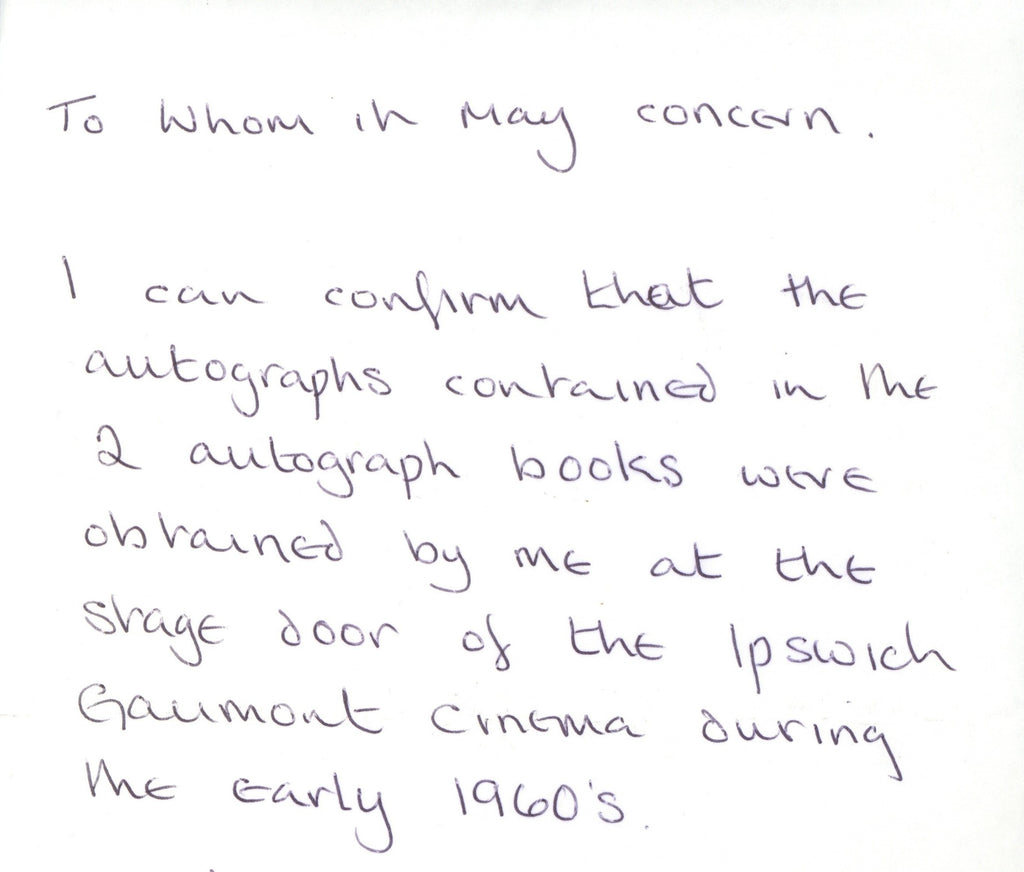 To Whom it May concern.
I can confirm that the
autographs contained in the
2 autograph books were
obtained by me at the
stage door of the Ipswich
Gaumont Cinema during
the early 1960's.